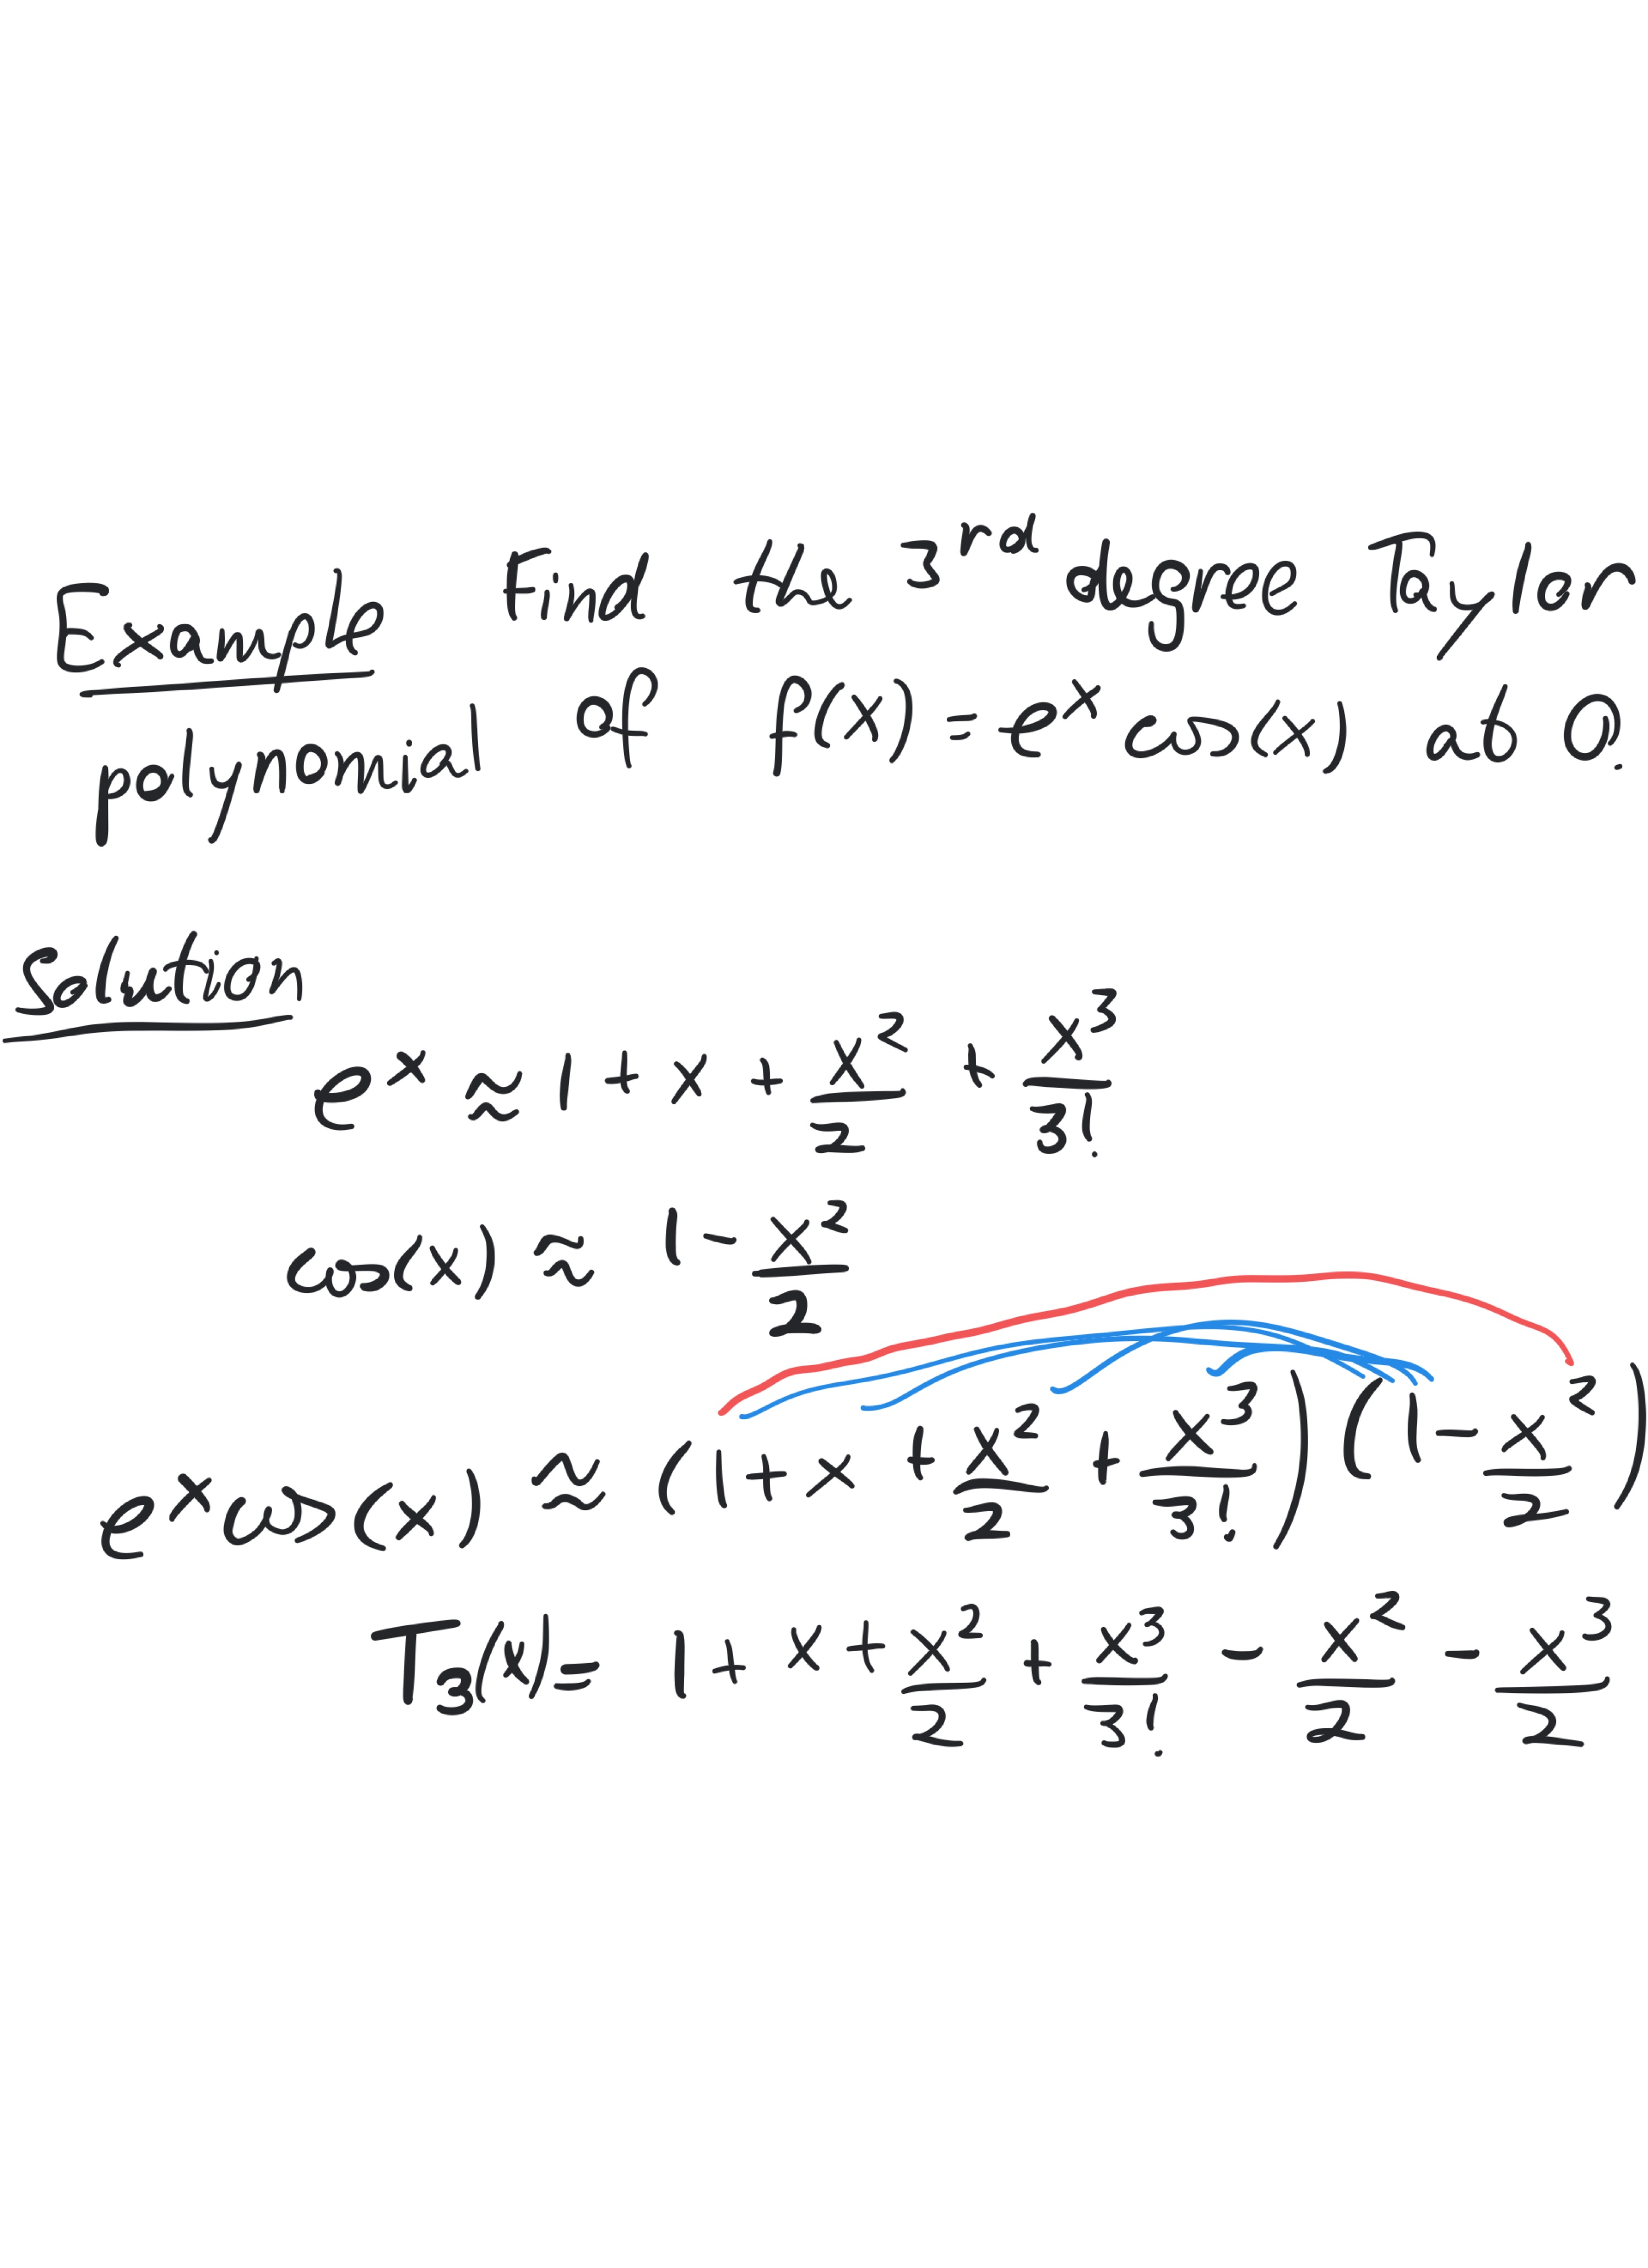 Example Find the 3rd degree Taylor
polynomial of f(x) = e^x cos(x) at 0.
Solution
e^x ≈ 1 + x + x^2/2 + x^3/3!
cos(x) ≈ 1 - x^2/2
e^x cos(x) ≈ (1 + x + x^2/2 + x^3/3!)(1 - x^2/2)
T_3(x) = 1 + x + x^2/2 + x^3/3! - x^2/2 - x^3/2